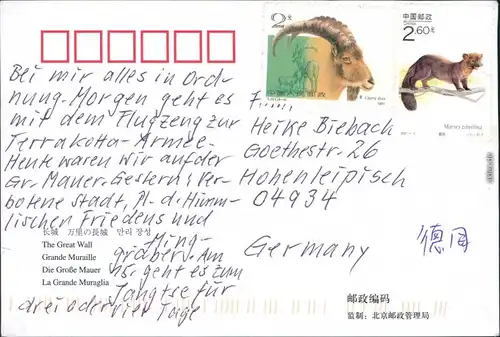 2元
中国邮政
2.60元
Bei mir alles in Ord-
nung. Morgen geht es
mit dem Flugzeug zur
Terrakotta-Armee.
Heute waren wir auf der
Gr. Mauer. Gestern: Ver-
botene Stadt, Pl. d. Himm-
lischen Friedens und
Ming-
gräber. Am
15. geht es zum
Jangtse für
drei oder vier Tage
F.....
Heike Biebach
Goethestr. 26
Hohenleipisch
04934
Germany
德国
长城 万里の長城 만리장성
The Great Wall
Grande Muraille
Die Große Mauer
La Grande Muraglia
邮政编码
监制：北京邮政管理局